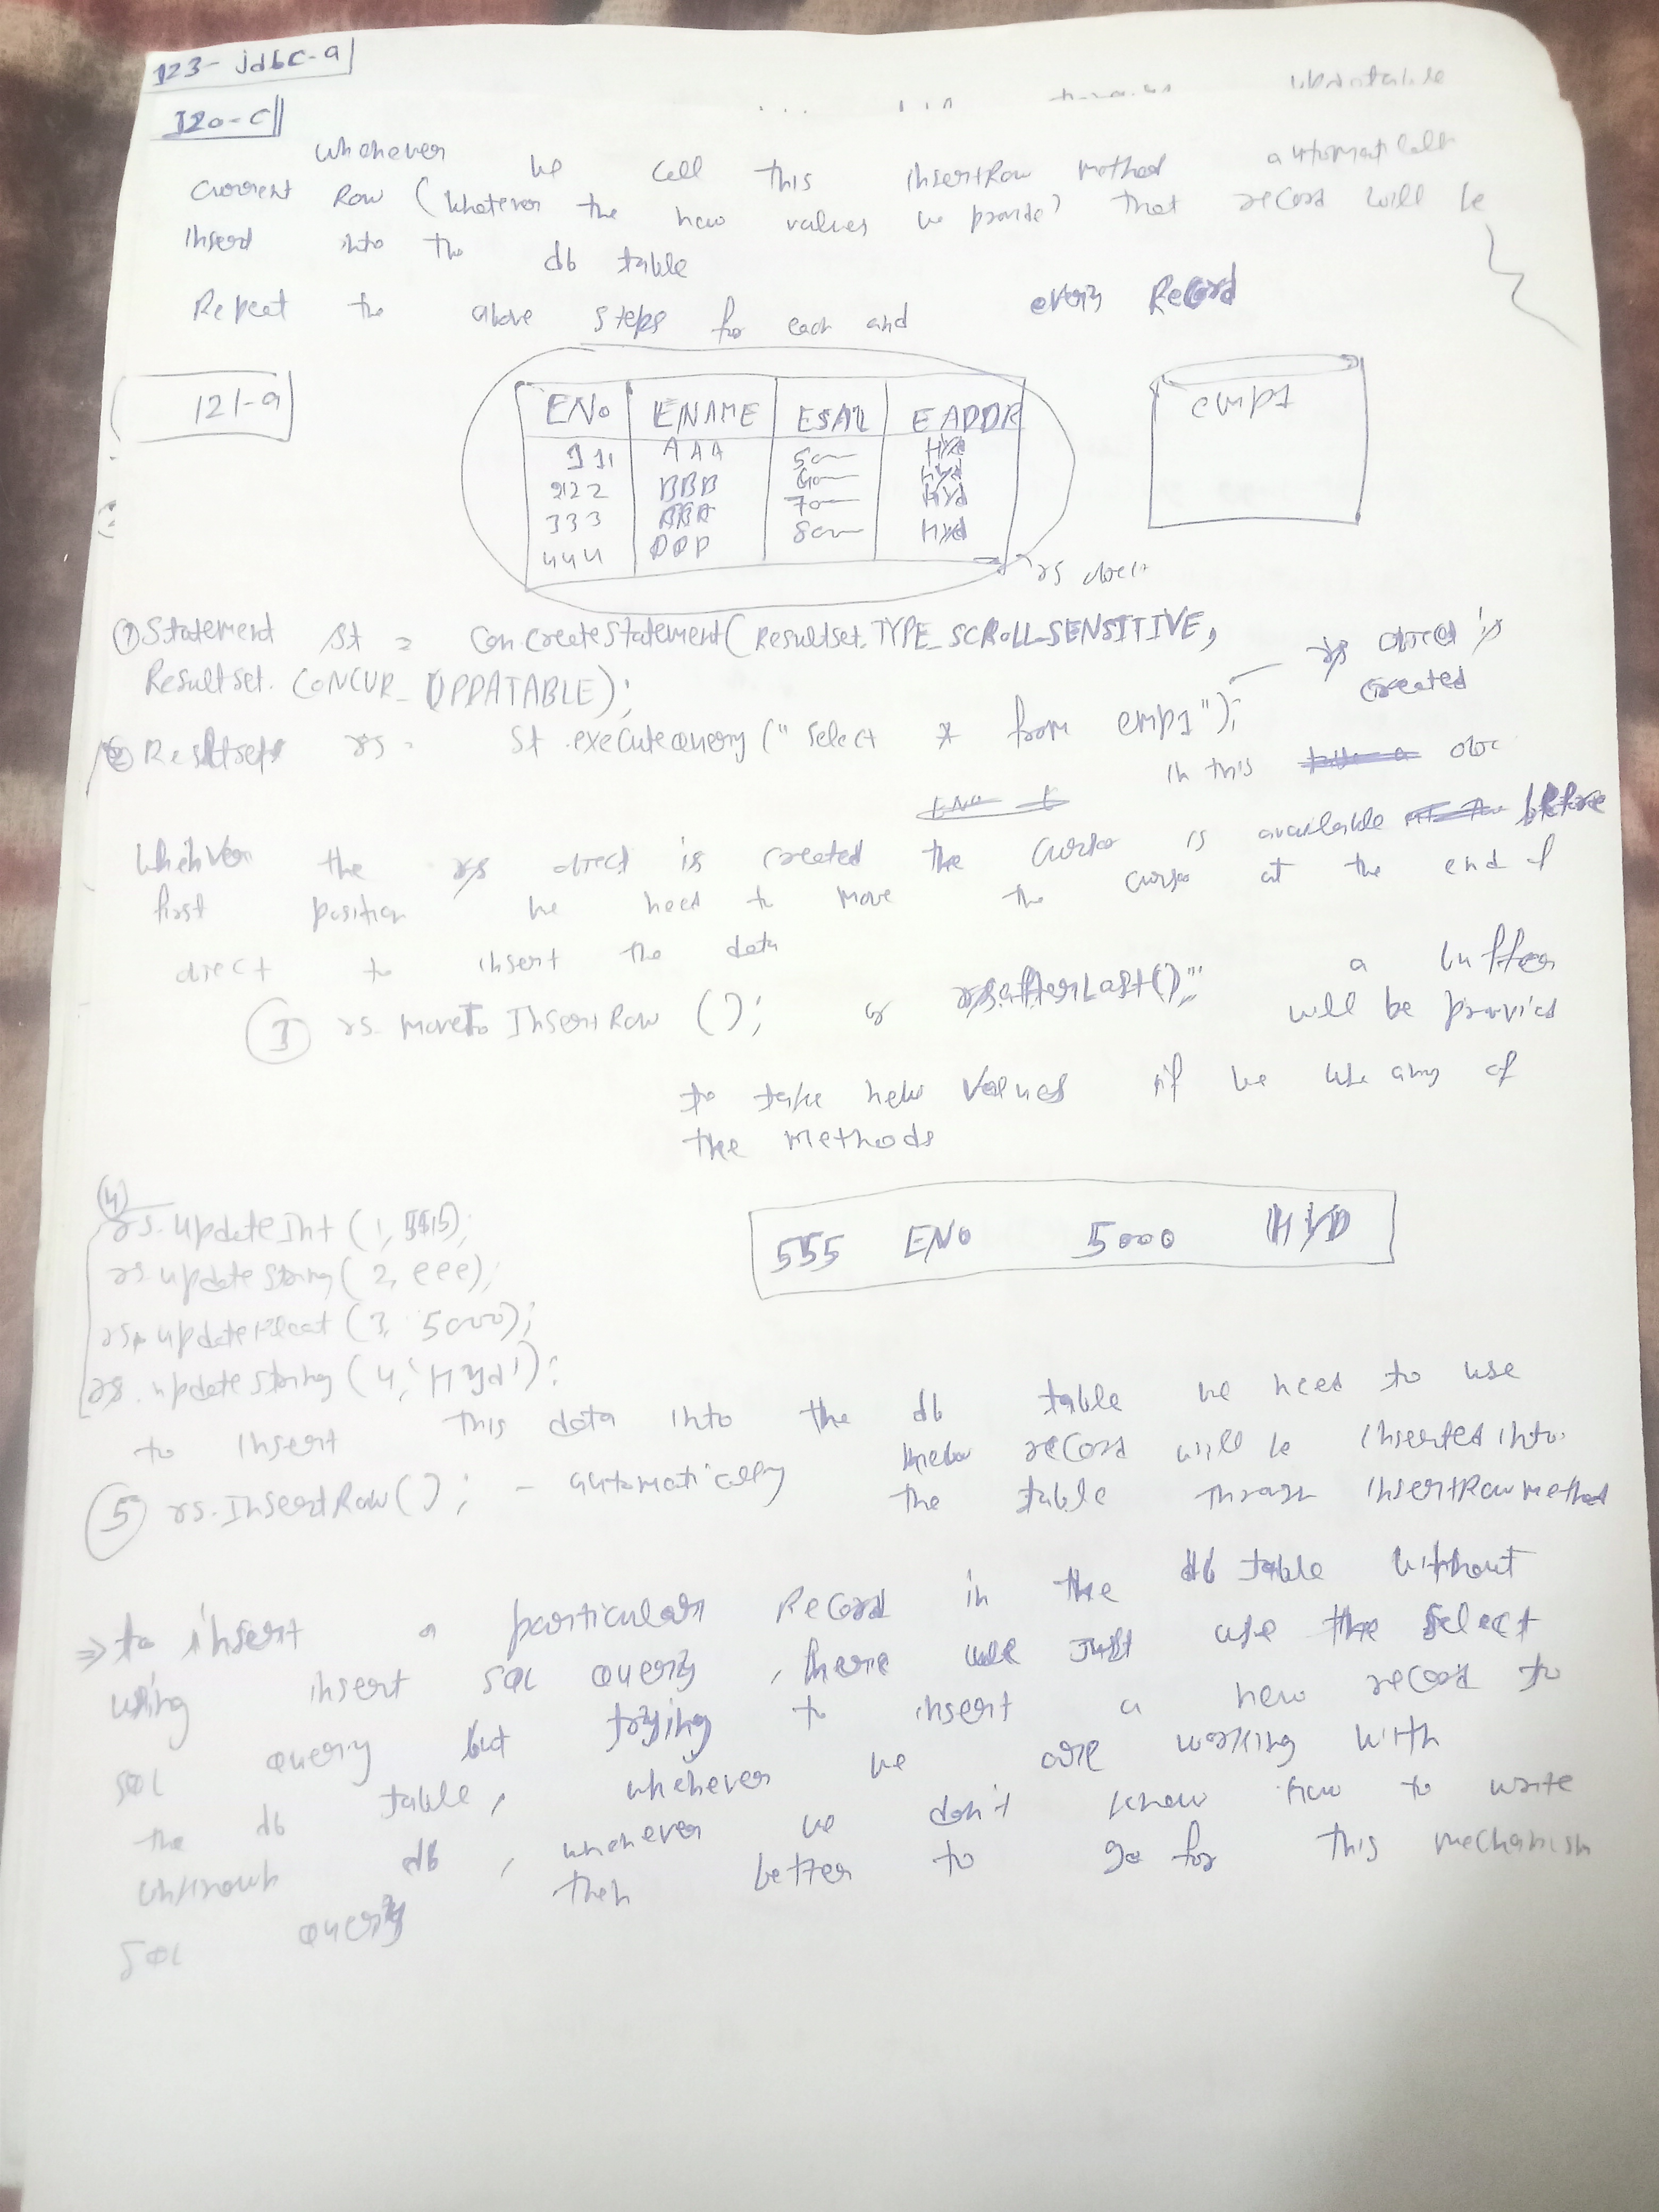 123- jdbc-a
120-c
whenever we call this insertRow method automatically
current Row (whatever the new values we provide) that record will be
insert into the db table
Repeat the above steps for each and every Record
121-a
ENo ENAME ESAL EADDR
111 AAA 5000 Hyd
222 BBB 6000 Hyd
333 7000 Hyd
444 DDD 8000 Hyd
emp1
rs object
① Statement st = con.createStatement(Resultset.TYPE_SCROLL_SENSITIVE,
Resultset.CONCUR_UPDATABLE);
rs object is
created
② Resultset rs = st.executequery("select * from emp1");
in this
whenever the rs object is created the cursor is available before
first position we need to move the cursor at the end of
object to insert the data
③ rs.moveTo InsertRow (); or rs.afterLast();
a buffer
will be provid
to take new values if we use any of
the methods
④
rs.updateInt (1, 555);
rs.updatestring( 2, eee);
rs.updatefloat (3, 5000);
rs.updatestring (4, 'Hyd');
555 ENO 5000 HYD
to insert this data into the db table we need to use
⑤ rs.InsertRow(); - automatically
record will be inserted into
the table through insertRow method
⇒ to insert a particular Record in the db table without
using insert SQL query, here we Just use the select
SQL query but trying to insert a new record to
the db table, whenever we are working with
unknown db, whenever we don't know how to write
SQL query then better to go for this mechanism